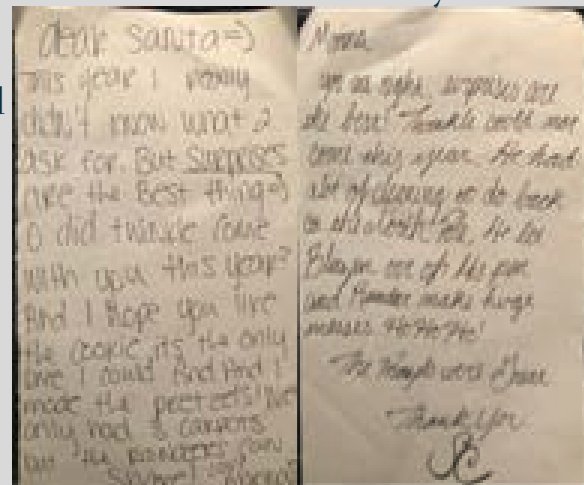 dear Santa =)
This year I really
didn't know what 2
ask for. But Surprises
are the Best thing =)
O did twinkle come
with you this year?
And I Hope you like
the cookie, its the only
one I could find And I
made the
only had 3 carrots
but the can
Share! Love
Moma
are right, surprises are
the best! Twinkle could not
come this year. He had
alot of cleaning to do back
at the North Pole. He let
out of his pen
and make huge
messes. HeHeHe!
The were
Thank You
SC